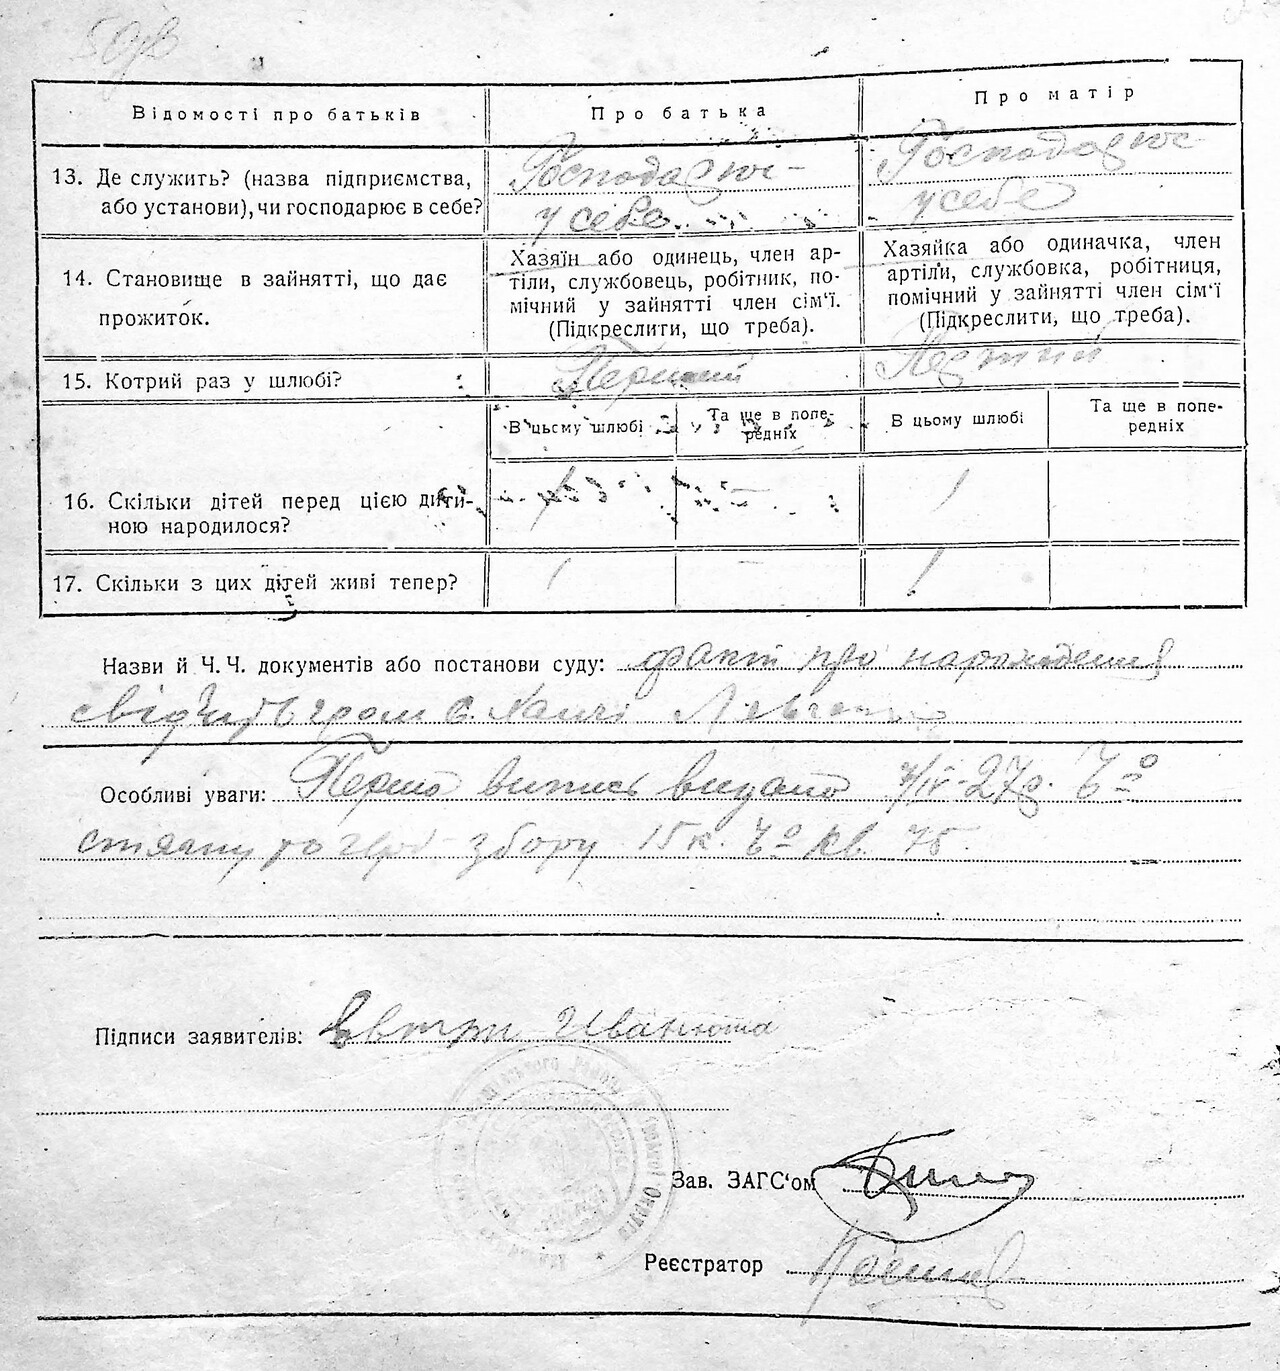 Відомості про батьків
Про батька
Про матір
13. Де служить? (назва підприємства,
або установи), чи господарює в себе?
Господарює
у себе
Господарює
у себе
14. Становище в зайнятті, що дає
прожиток.
Хазяїн або одинець, член ар-
тіли, службовець, робітник, по-
мічний у зайнятті член сім'ї.
(Підкреслити, що треба).
Хазяйка або одиначка, член
артіли, службовка, робітниця,
помічний у зайнятті член сім'ї
(Підкреслити, що треба).
15. Котрий раз у шлюбі?
Перший
Перший
В цьому шлюбі
Та ще в попе-
редніх
В цьому шлюбі
Та ще в попе-
редніх
16. Скільки дітей перед цією дити-
ною народилося?
1
17. Скільки з цих дітей живі тепер?
1
—
1
Назви й Ч. Ч. документів або постанови суду: факт про народження
свідчить гром с.
Особливі уваги: Перша випись видана 7/IV-27р.
збору 15 к. кв. 75
Підписи заявителів: Иванюта
Зав. ЗАГС'ом
Реєстратор